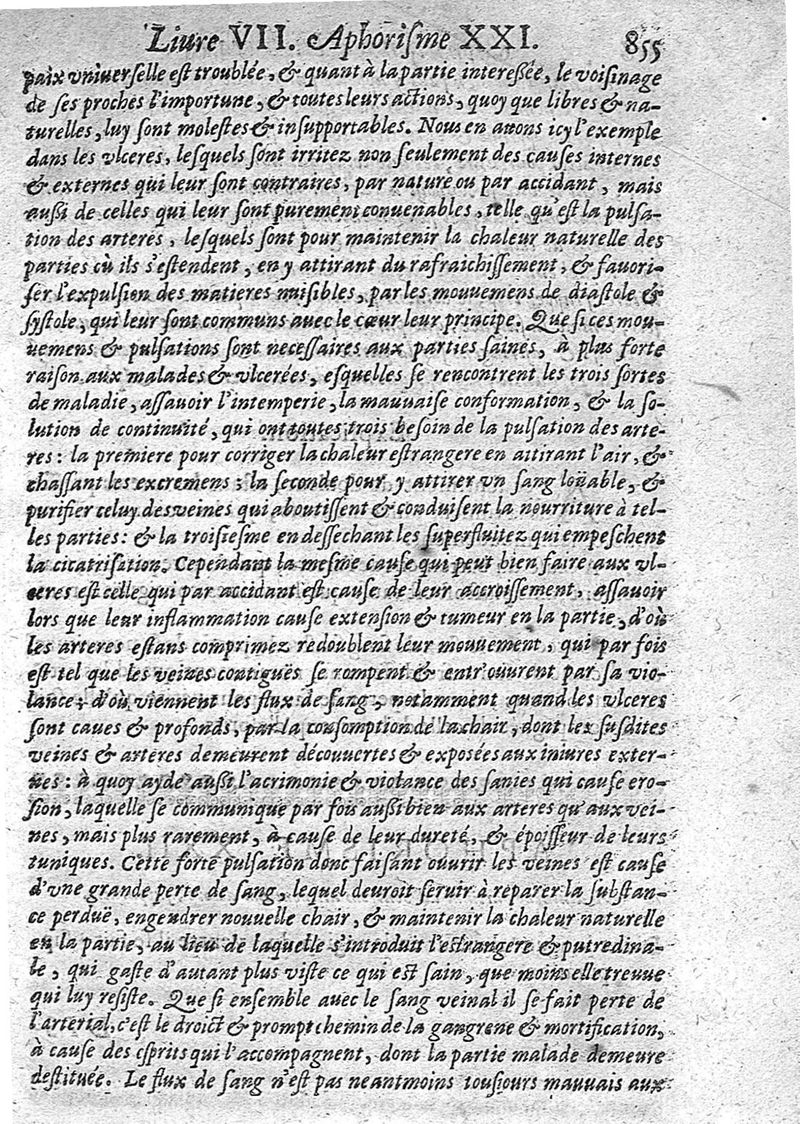 Liure VII. Aphoriſme XXI. 855
paix vniuerſelle eſt troublée, & quant à la partie intereßée, le voiſinage
de ſes proches l'importune, & toutes leurs actions, quoy que libres & na-
turelles, luy ſont moleſtes & inſupportables. Nous en auons icy l'exemple
dans les vlceres, leſquels ſont irritez non ſeulement des cauſes internes
& externes qui leur ſont contraires, par nature ou par accidant, mais
außi de celles qui leur ſont purement conuenables, telle qu'eſt la pulſa-
tion des arteres, leſquels ſont pour maintenir la chaleur naturelle des
parties où ils s'eſtendent, en y attirant du rafraichiſſement, & fauori-
ſer l'expulſion des matieres nuiſibles, par les mouuemens de diaſtole &
ſyſtole, qui leur ſont communs auec le cœur leur principe. Que ſi ces mou-
uemens & pulſations ſont neceſſaires aux parties ſaines, à plus forte
raiſon aux malades & vlcerées, eſquelles ſe rencontrent les trois ſortes
de maladie, aſſauoir l'intemperie, la mauuaiſe conformation, & la ſo-
lution de continuité, qui ont toutes trois beſoin de la pulſation des arte-
res: la premiere pour corriger la chaleur eſtrangere en attirant l'air, &
chaſſant les excremens; la ſeconde pour y attirer vn ſang loüable, &
purifier celuy des veines qui aboutiſſent & conduiſent la nourriture à tel-
les parties: & la troiſieſme en deſſechant les ſuperfluitez qui empeſchent
la cicatriſation. Cependant la meſme cauſe qui peut bien faire aux vl-
ceres eſt celle qui par accidant eſt cauſe de leur accroiſſement, aſſauoir
lors que leur inflammation cauſe extenſion & tumeur en la partie, d'où
les arteres eſtans comprimez redoublent leur mouuement, qui par fois
eſt tel que les veines contiguës ſe rompent & entr'ouurent par ſa vio-
lance; d'où viennent les flux de ſang, notamment quand les vlceres
ſont caues & profonds, par la conſomption de la chair, dont les ſuſdites
veines & arteres demeurent découuertes & expoſées aux iniures exter-
nes: à quoy ayde außi l'acrimonie & violance des ſanies qui cauſe ero-
ſion, laquelle ſe communique par fois außi bien aux arteres qu'aux vei-
nes, mais plus rarement, à cauſe de leur dureté, & époiſſeur de leurs
tuniques. Cette forte pulſation donc faiſant ouurir les veines eſt cauſe
d'vne grande perte de ſang, lequel deuroit ſeruir à reparer la ſubſtan-
ce perduë, engendrer nouuelle chair, & maintenir la chaleur naturelle
en la partie, au lieu de laquelle s'introduit l'eſtrangere & putredina-
le, qui gaſte d'autant plus viſte ce qui eſt ſain, que moins elle treuue
qui luy reſiſte. Que ſi enſemble auec le ſang veinal il ſe fait perte de
l'arterial, c'eſt le droict & prompt chemin de la gangrene & mortification,
à cauſe des eſprits qui l'accompagnent, dont la partie malade demeure
deſtituée. Le flux de ſang n'eſt pas neantmoins touſiours mauuais aux